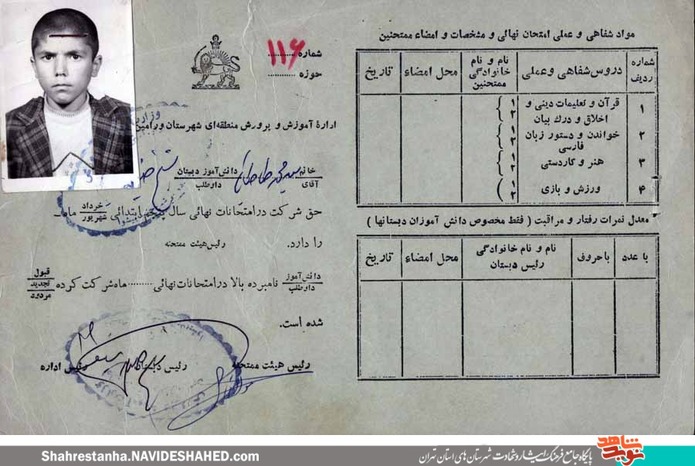 شماره ۱۱۶
حوزه
اداره آموزش و پرورش منطقه‌ای شهرستان ورامین
خانم
آقای
سید محمد
دانش‌آموز دبستان
داوطلب
حق شرکت در امتحانات نهائی سال پنجم ابتدائی خرداد شهریور ماه
را دارد.
رئیس هیئت ممتحنه
دانش‌آموز
داوطلب
نامبرده بالا در امتحانات نهائی ......... ماه شرکت کرده
قبول
تجدید
مردود
شده است.
رئیس هیئت ممتحنه
رئیس دبستان
رئیس اداره
مواد شفاهی و عملی امتحان نهائی و مشخصات و امضاء ممتحنین
شماره ردیف
دروس شفاهی وعملی
نام و نام خانوادگی ممتحنین
محل امضاء
تاریخ
۱ قرآن و تعلیمات دینی و اخلاق و درک بیان ۱ ۲
۲ خواندن و دستور زبان فارسی ۱ ۲
۳ هنر و کاردستی ۱ ۲
۴ ورزش و بازی ۱ ۲
معدل نمرات رفتار و مراقبت ( فقط مخصوص دانش آموزان دبستانها )
با عدد
باحروف
نام و نام خانوادگی رئیس دبستان
محل امضاء
تاریخ
Shahrestanha.NAVIDESHAHED.com
پایگاه جامع فرهنگ ایثار و شهادت شهرستان های استان تهران
نوید شاهد